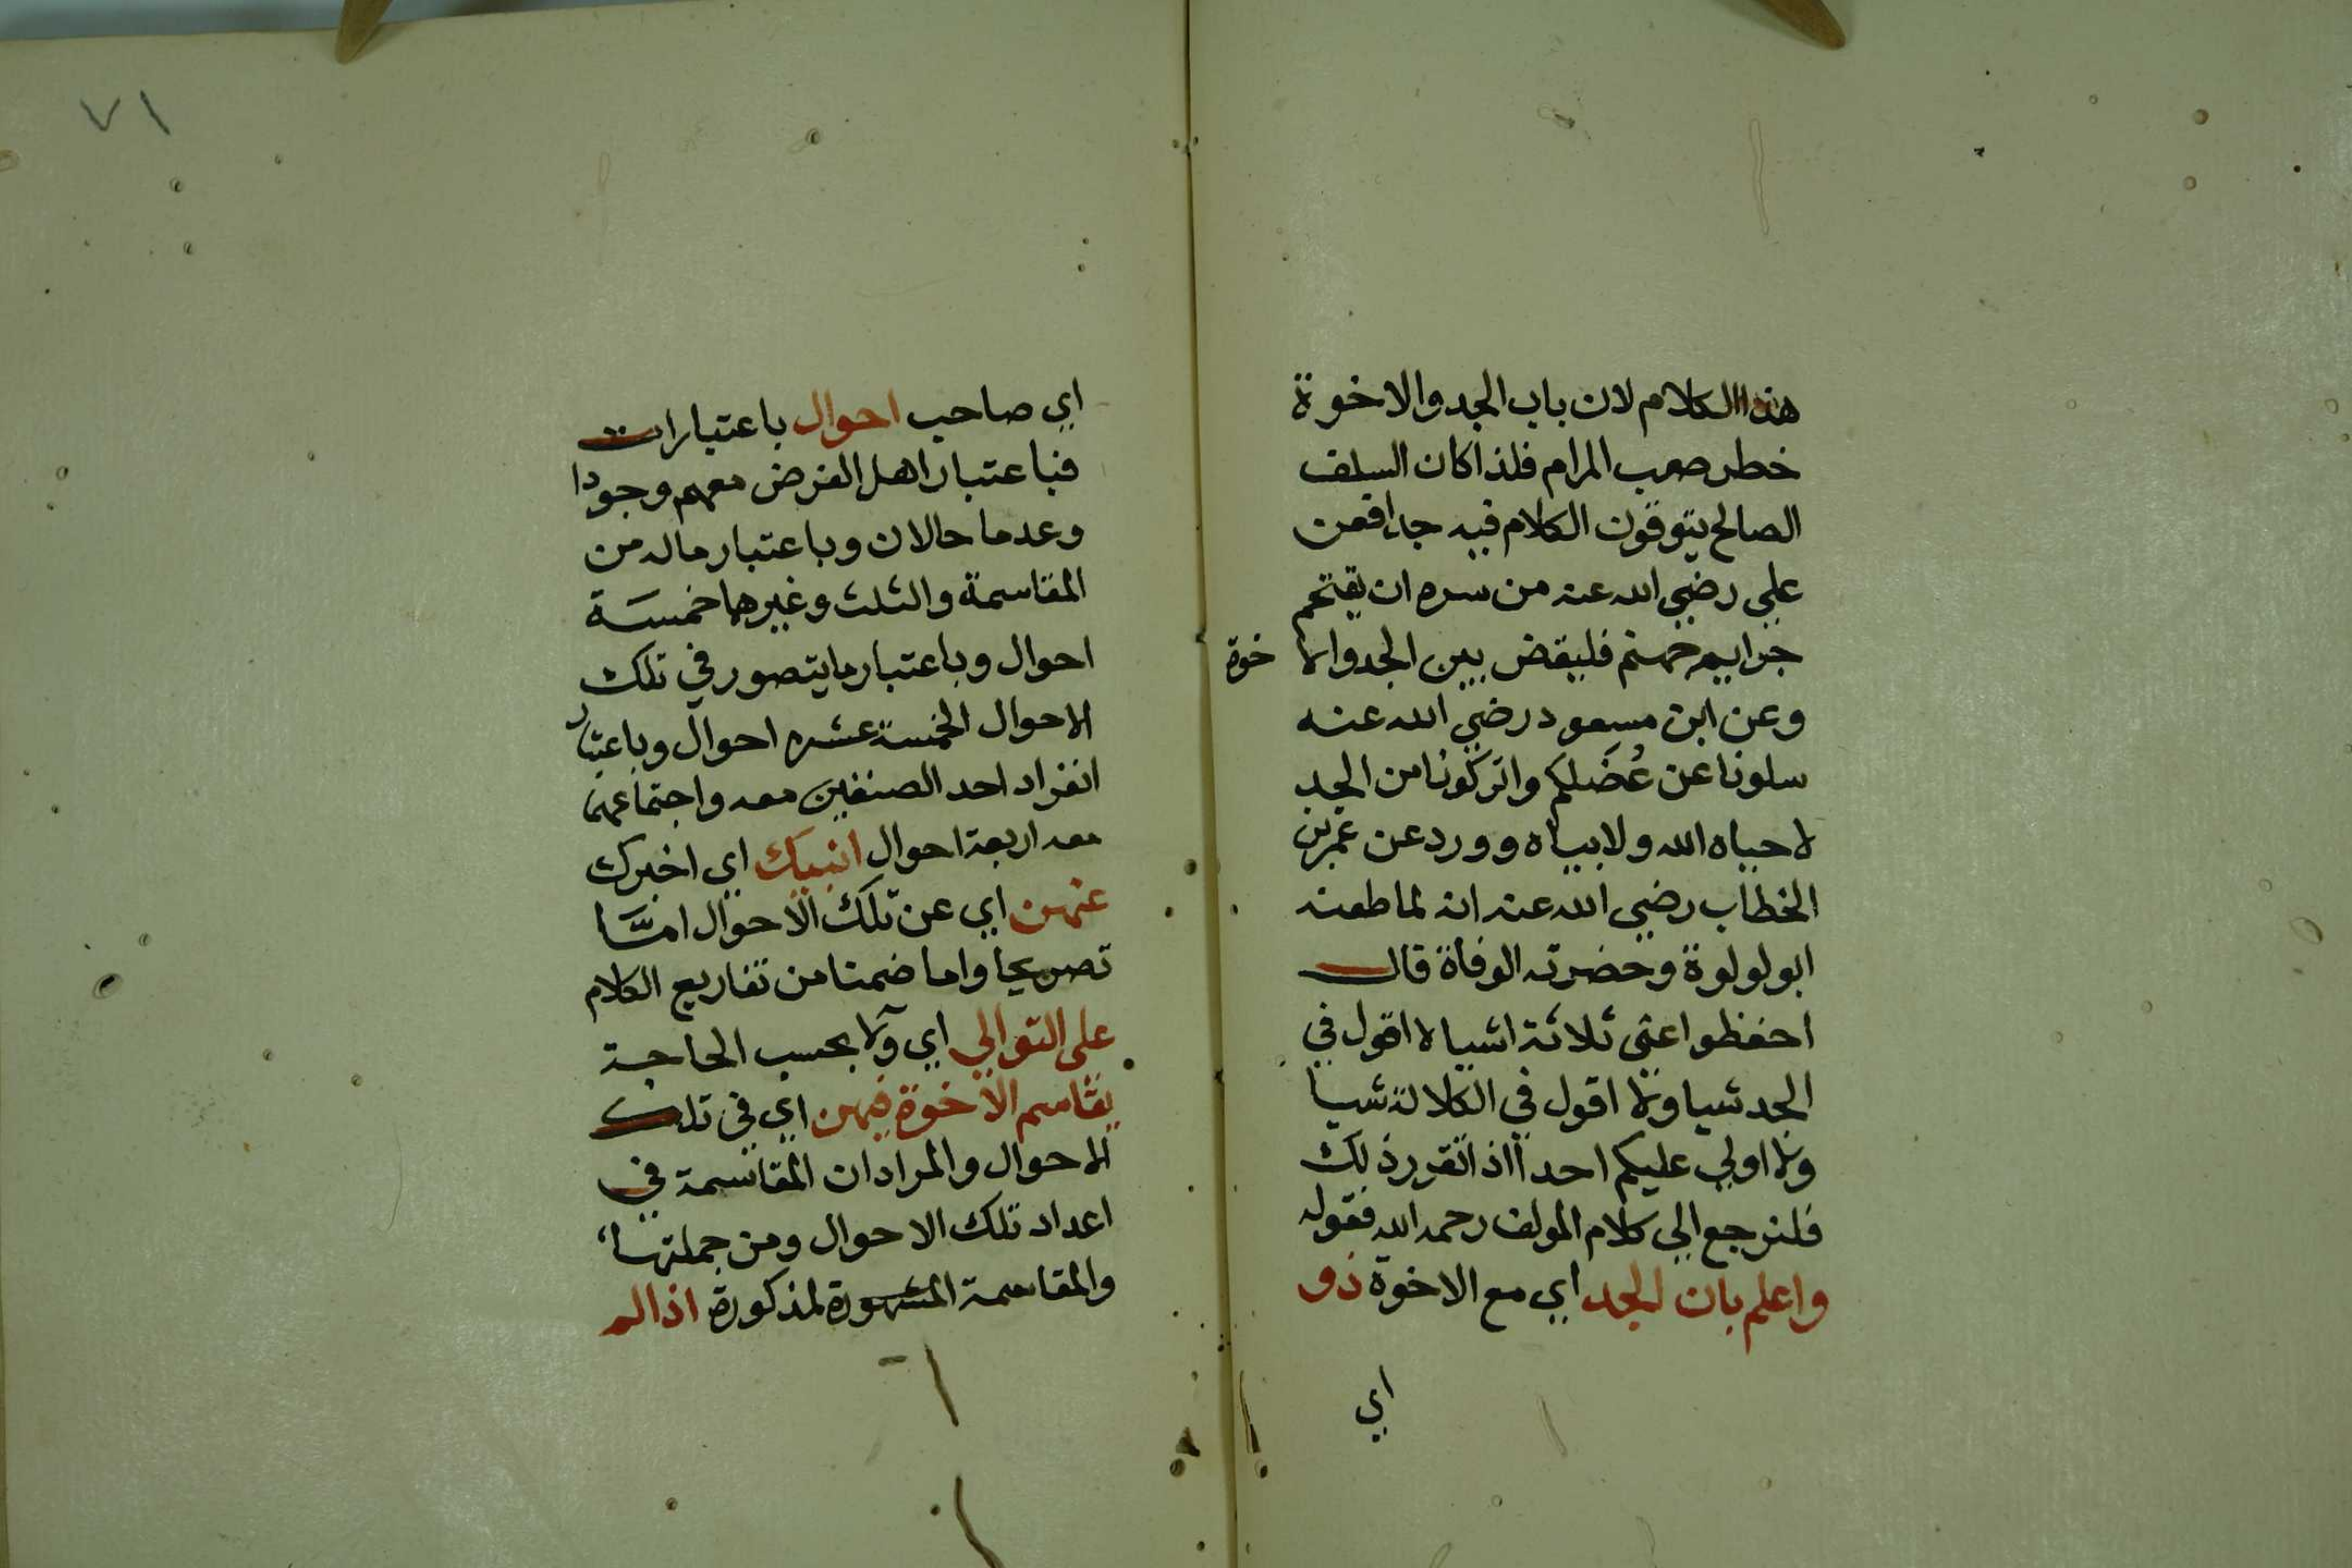 هذا الكلام لان باب الجد والاخوة
خطر صعب المرام فلذا كان السلف
الصالح يتوقون الكلام فيه جدا فعن
علي رضي الله عنه من سره ان يقتحم
جراثيم جهنم فليقض بين الجد والاخوة
وعن ابن مسعود رضي الله عنه
سلونا عن عُضَلكم واتركونا من الجد
لا حياه الله ولا بياه وورد عن عمر بن
الخطاب رضي الله عنه انه لما طعنه
ابو لولوة وحضرته الوفاة قال
احفظوا عني ثلاثة اشيا لا اقول في
الجد شيا ولا اقول في الكلالة شيا
ولا اولي عليكم احدا اذا تقرر ذلك
فلنرجع الي كلام المولف رحمه الله فقوله
واعلم بان الجد اي مع الاخوة ذو
اي
٧١
اي صاحب احوال باعتبارات
فباعتبار اهل الفرض معهم وجودا
وعدما حالان وباعتبار ماله من
المقاسمة والثلث وغيرهما خمسة
احوال وباعتبار ما يتصور في تلك
الاحوال الخمسة عشره احوال وباعتبار
انفراد احد الصنفين معه واجتماعهما
معه اربعة احوال انبيك اي اخبرك
عنهن اي عن تلك الاحوال امَّا
تصريحا واما ضمنا من تفاريع الكلام
على التوالي اي ولآ بحسب الحاجة
يقاسم الاخوة فيهن اي في تلك
الاحوال والمراد ان المقاسمة في
اعداد تلك الاحوال ومن جملتها
والمقاسمة المشهورة لمذكورة اذا لم